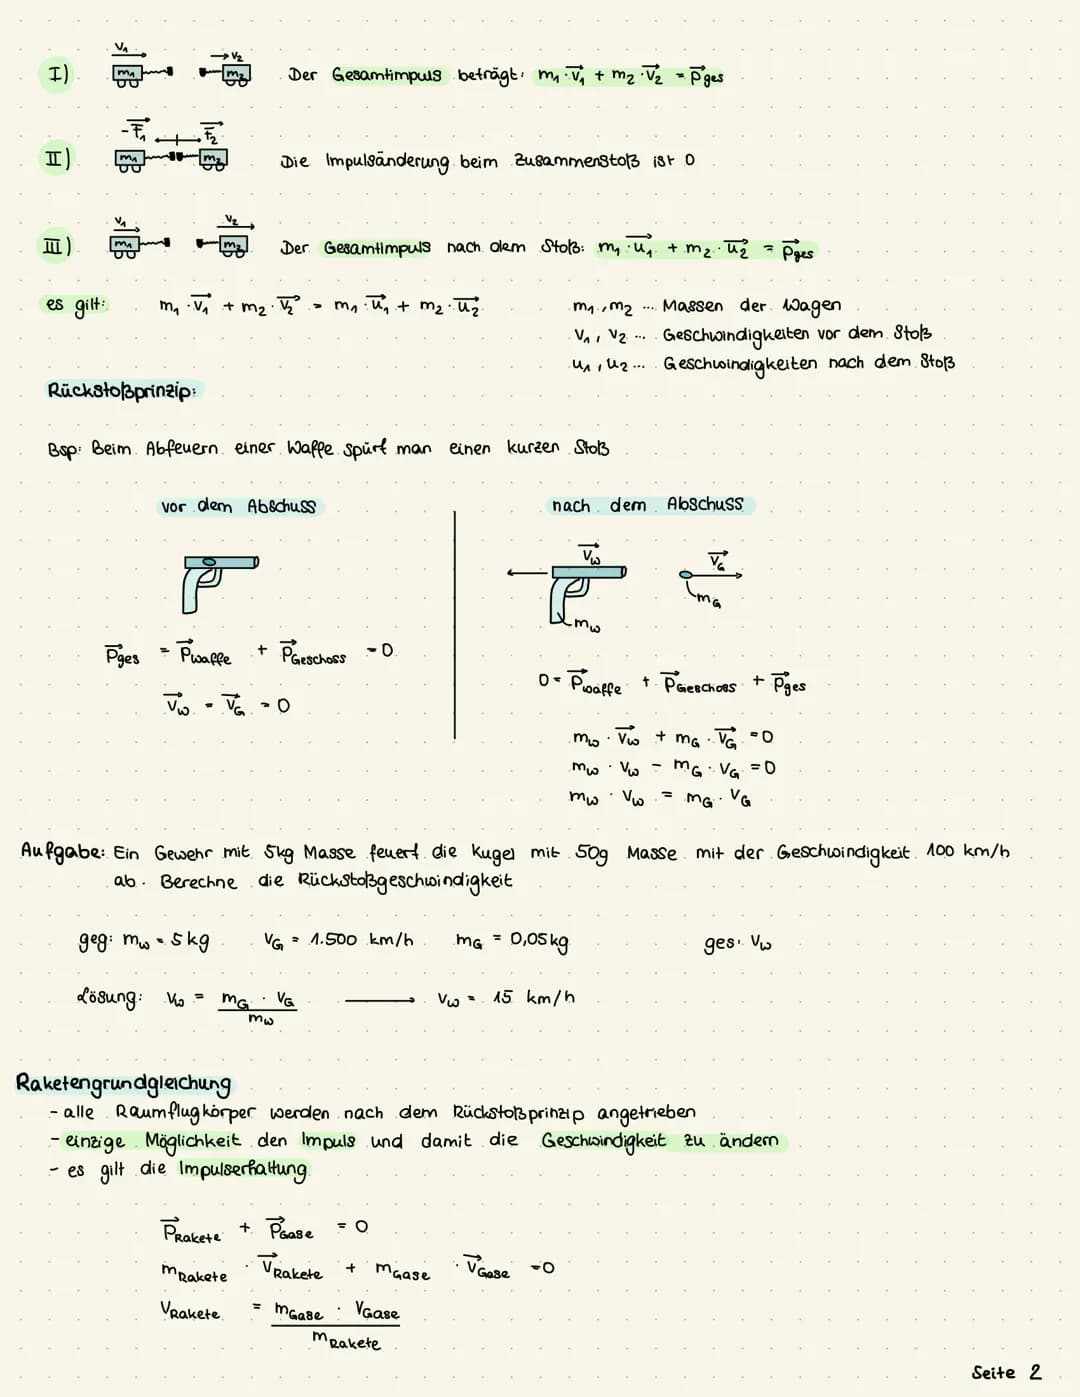 I) v₁ → v₂ m₁ m₂ Der Gesamtimpuls beträgt: m₁ · v₁ + m₂ · v₂ = pges
II) -F₁ F₂ m₁ m₂ Die Impulsänderung beim Zusammenstoß ist 0
III) v₁ v₂ m₁ m₂ Der Gesamtimpuls nach dem Stoß: m₁ · u₁ + m₂ · u₂ = pges
es gilt: m₁ · v₁ + m₂ · v₂ = m₁ · u₁ + m₂ · u₂
m₁, m₂ ... Massen der Wagen
v₁, v₂ ... Geschwindigkeiten vor dem Stoß
u₁, u₂ ... Geschwindigkeiten nach dem Stoß
Rückstoßprinzip:
Bsp: Beim Abfeuern einer Waffe spürt man einen kurzen Stoß
vor dem Abschuss
pges = pwaffe + pGeschoss = 0
vw = vG = 0
nach dem Abschuss
vw vG
mG
mw
0 = pwaffe + pGeschoss + pges
mw · vw + mG · vG = 0
mw · vw - mG · vG = 0
mw · vw = mG · vG
Aufgabe: Ein Gewehr mit 5kg Masse feuert die Kugel mit 50g Masse mit der Geschwindigkeit 100 km/h
ab. Berechne die Rückstoßgeschwindigkeit
geg: mw = 5kg vG = 1.500 km/h mG = 0,05kg ges: vw
Lösung: vw = mG · vG / mw → vw = 15 km/h
Raketengrundgleichung
- alle Raumflugkörper werden nach dem Rückstoßprinzip angetrieben
- einzige Möglichkeit den Impuls und damit die Geschwindigkeit zu ändern
- es gilt die Impulserhaltung
pRakete + pGase = 0
mRakete · vRakete + mGase · vGase = 0
vRakete = mGase · vGase / mRakete
Seite 2